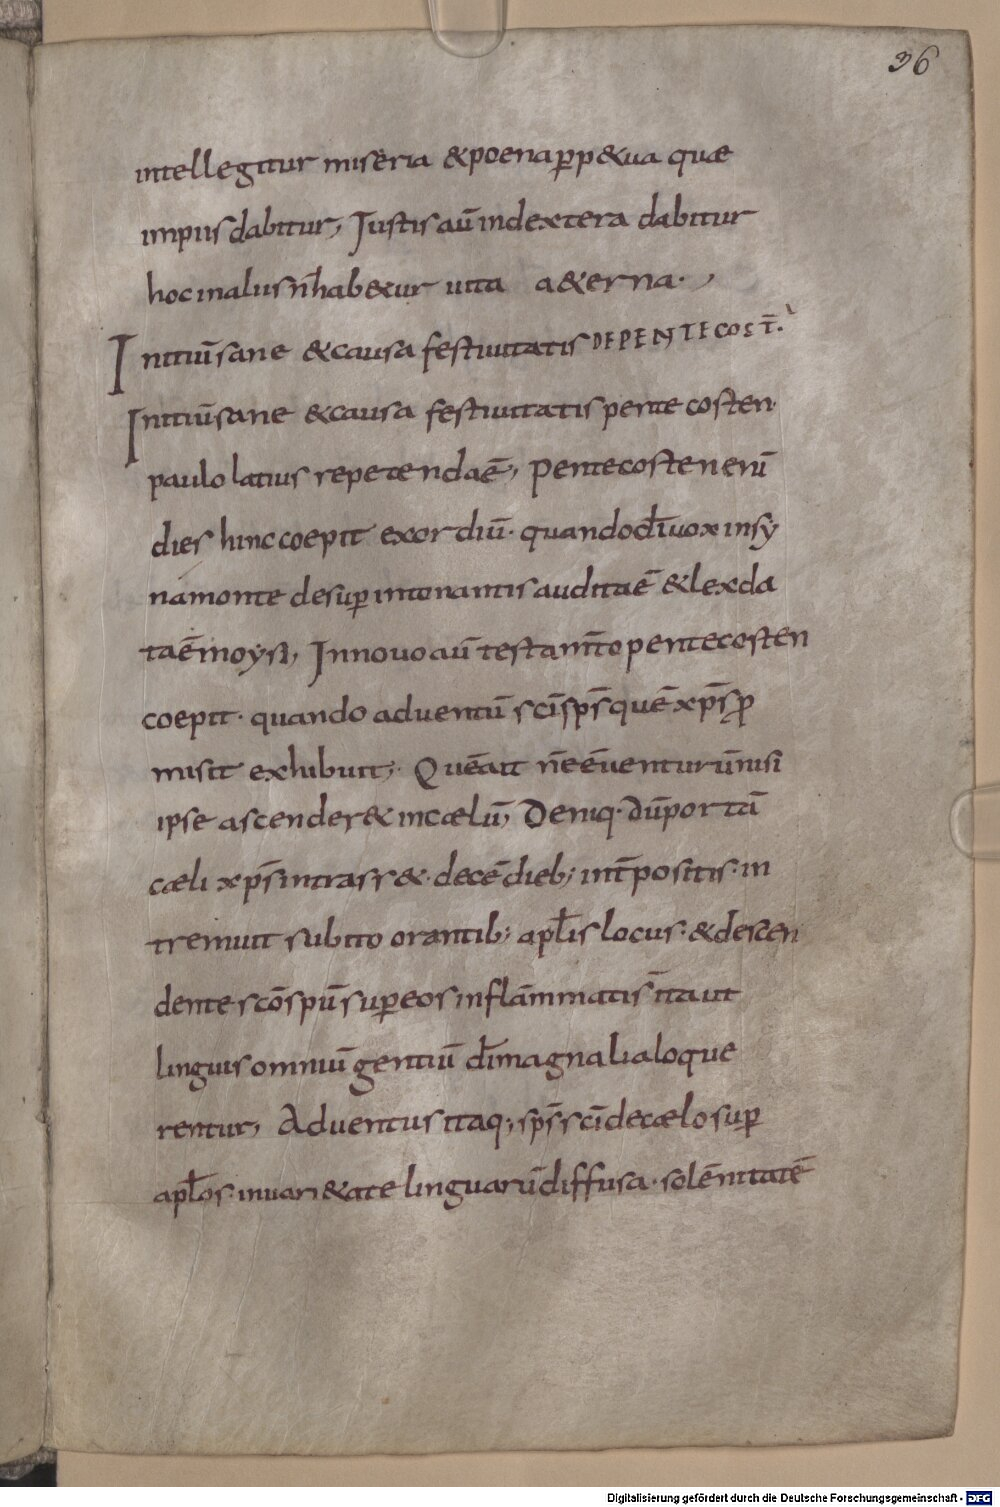 36
intellegitur miseria & poena ꝑp&ua quae
impiis dabitur, Iustis aū indextera dabitur
hoc malus n̄ hab&ur uita a&erna.
Initiū sane & causa festiuitatis DE PENTECOST̄.
Initiū sane & causa festiuitatis pente costen.
paulo latius repetendaē, Pentecosten enī
dies hinc coepit exordiū. quando dī uox insy
namonte desuꝑ intonantis auditaē & lex da
taē moysi, Innouo aū testam̄to pentecosten
coepit. quando aduentū sc̄i sp̄s quē xp̄s ꝓ
misit exhibuit, Quē ait n̄ eē uenturū nisi
ipse ascender& incaelū, Deniq. dū portā
caeli xp̄s intrass&. decē dieb; int̄positis. in
tremuit subito orantib; apl̄is locus. & descen
dente sc̄o spū suꝑ eos inflāmmatis ita ut
linguis omniū gentiū dī magnalia loque
rentur, Aduentus itaq; sp̄s sc̄i decaelo suꝑ
apl̄os. inuari&ate linguarū diffusa. solēnitatē
Digitalisierung gefördert durch die Deutsche Forschungsgemeinschaft - DFG